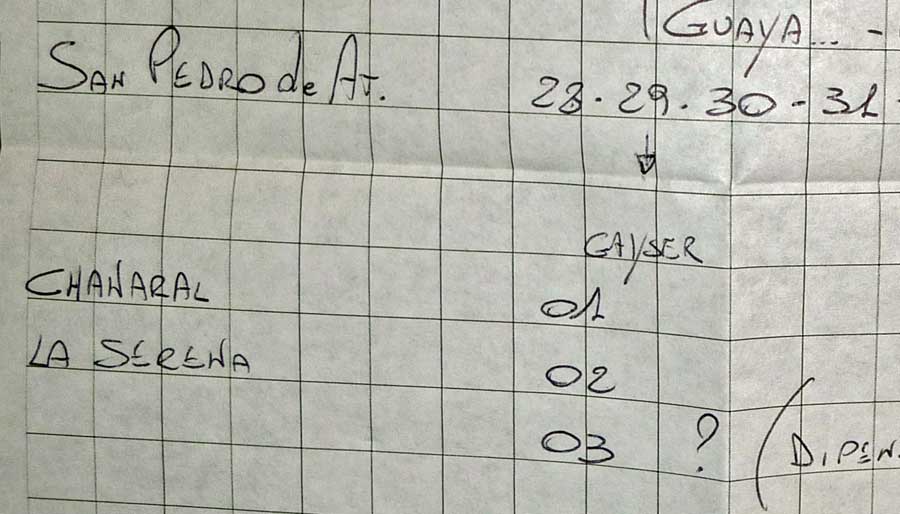 GUAYA... -
SAN PEDRO de AT. 28 · 29 · 30 - 31 -
GAYSER
CHAÑARAL 01
LA SERENA 02
03 ? ( DIPEN